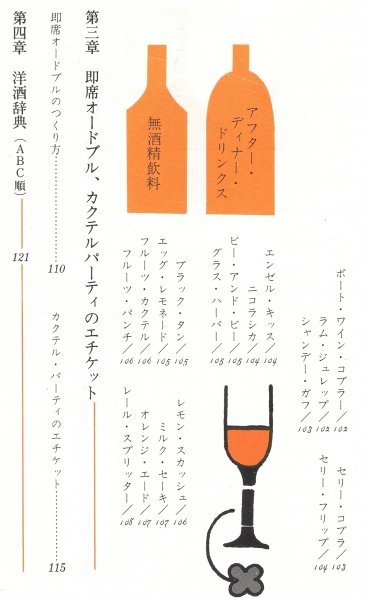 ポート・ワイン・コブラー/102
ラム・ジュレップ/102
シャンデー・ガフ/103
セリー・コブラ/103
セリー・フリップ/104
アフター・
ディナー・
ドリンクス
エンゼル・キッス/104
ニコラシカ/104
ビー・アンド・ビー/105
グラス・ハーパー/105
無酒精飲料
ブラック・タン/105
エッグ・レモネード/105
フルーツ・カクテル/106
フルーツ・パンチ/106
レモン・スカッシュ/106
ミルク・セーキ/107
オレンジ・エード/107
レール・スプリッター/108
第三章 即席オードブル、カクテルパーティのエチケット
即席オードブルのつくり方 110
カクテル・パーティのエチケット 115
第四章 洋酒辞典(ABC順) 121